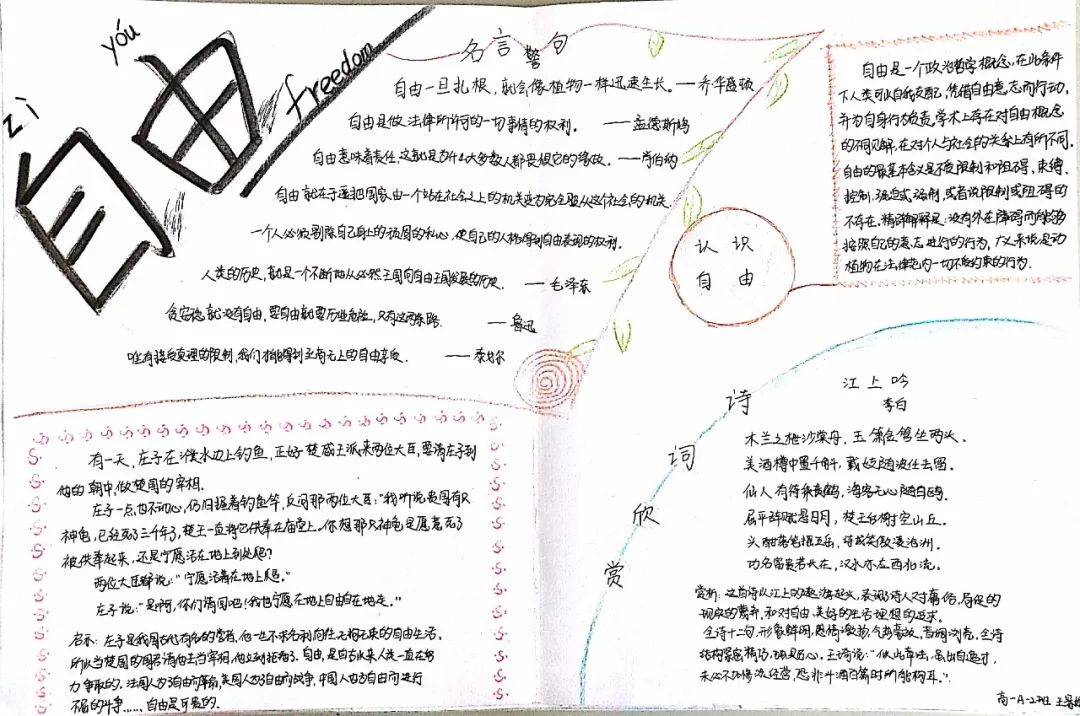 zì
yóu
自由
freedom
名言警句
自由一旦扎根，就会像植物一样迅速生长。——乔华盛顿
自由是做法律所许可的一切事情的权利。——孟德斯鸠
自由意味着责任，这就是为什么大多数人都畏惧它的缘故。——肖伯纳
自由就在于把国家由一个站在社会之上的机关变为完全服从这个社会的机关.
一个人必须剔除自己身上的顽固的私心，使自己的人格得到自由表现的权利.
人类的历史，就是一个不断地从必然王国向自由王国发展的历史.——毛泽东
贪安稳就没有自由，要自由就要历些危险，只有这两条路.——鲁迅
唯有接受真理的限制，我们才能得到至高无上的自由享受.——泰戈尔
认识
自由
自由是一个政治哲学概念，在此条件
下人类可以自我支配，凭借自由意志而行动，
并为自身行为负责，学术上存在对自由概念
的不同见解，在对个人与社会的关系上有所不同.
自由的最基本含义是不受限制和阻碍，束缚、
控制、强迫或强制，或者说限制或阻碍的
不存在.精辟解释是：没有外在障碍而能够
按照自己的意志进行的行为，广义来说是动
植物在法律范内一切不受约束的行为.
有一天，庄子在濮水边上钓鱼，正好楚威王派来两位大臣，要请庄子到
他的朝中，做楚国的宰相.
庄子一点也不动心，仍旧握着钓鱼竿，反问那两位大臣："我听说贵国有只
神龟，已经死了三千年了，楚王一直将它供奉在庙堂上.你想那只神龟是愿意死了
被供奉起来，还是宁愿活在地上到处爬？
两位大臣辩说："宁愿活着在地上爬."
庄子说："是啊，你们请回吧！我也宁愿在地上自由自在地走."
启示：庄子是我国古代有名的贤者，他一也不求名利向往无拘无束的自由生活，
所以当楚国的国君请他去当宰相，他立刻拒绝了.自由，是自古以来人类一直在努
力争取的.法国人为自由而革命，美国人为自由而战争，中国人也为自由而进行
不屈的斗争……，自由是可爱的.
诗词欣赏
江上吟
李白
木兰之枻沙棠舟，玉箫金管坐两头.
美酒樽中置千斛，载妓随波任去留.
仙人有待乘黄鹤，海客无心随白鸥.
屈平辞赋悬日月，楚王台榭空山丘.
兴酣落笔摇五岳，诗成笑傲凌沧洲.
功名富贵若长在，汉水亦应西北流.
赏析：这首诗以江上的遨游起兴，表现了诗人对庸俗、局促的
现实的蔑弃，和对自由、美好的生活理想的追求.
全诗十二句，形象鲜明，感情激扬，气势豪放，音调浏亮.全诗
结构紧密精巧，独具匠心.王琦说："似此章法，虽出自逸才，
未必不少加惨淡经营，恐非斗酒百篇时所能构耳.".
高一A-2班